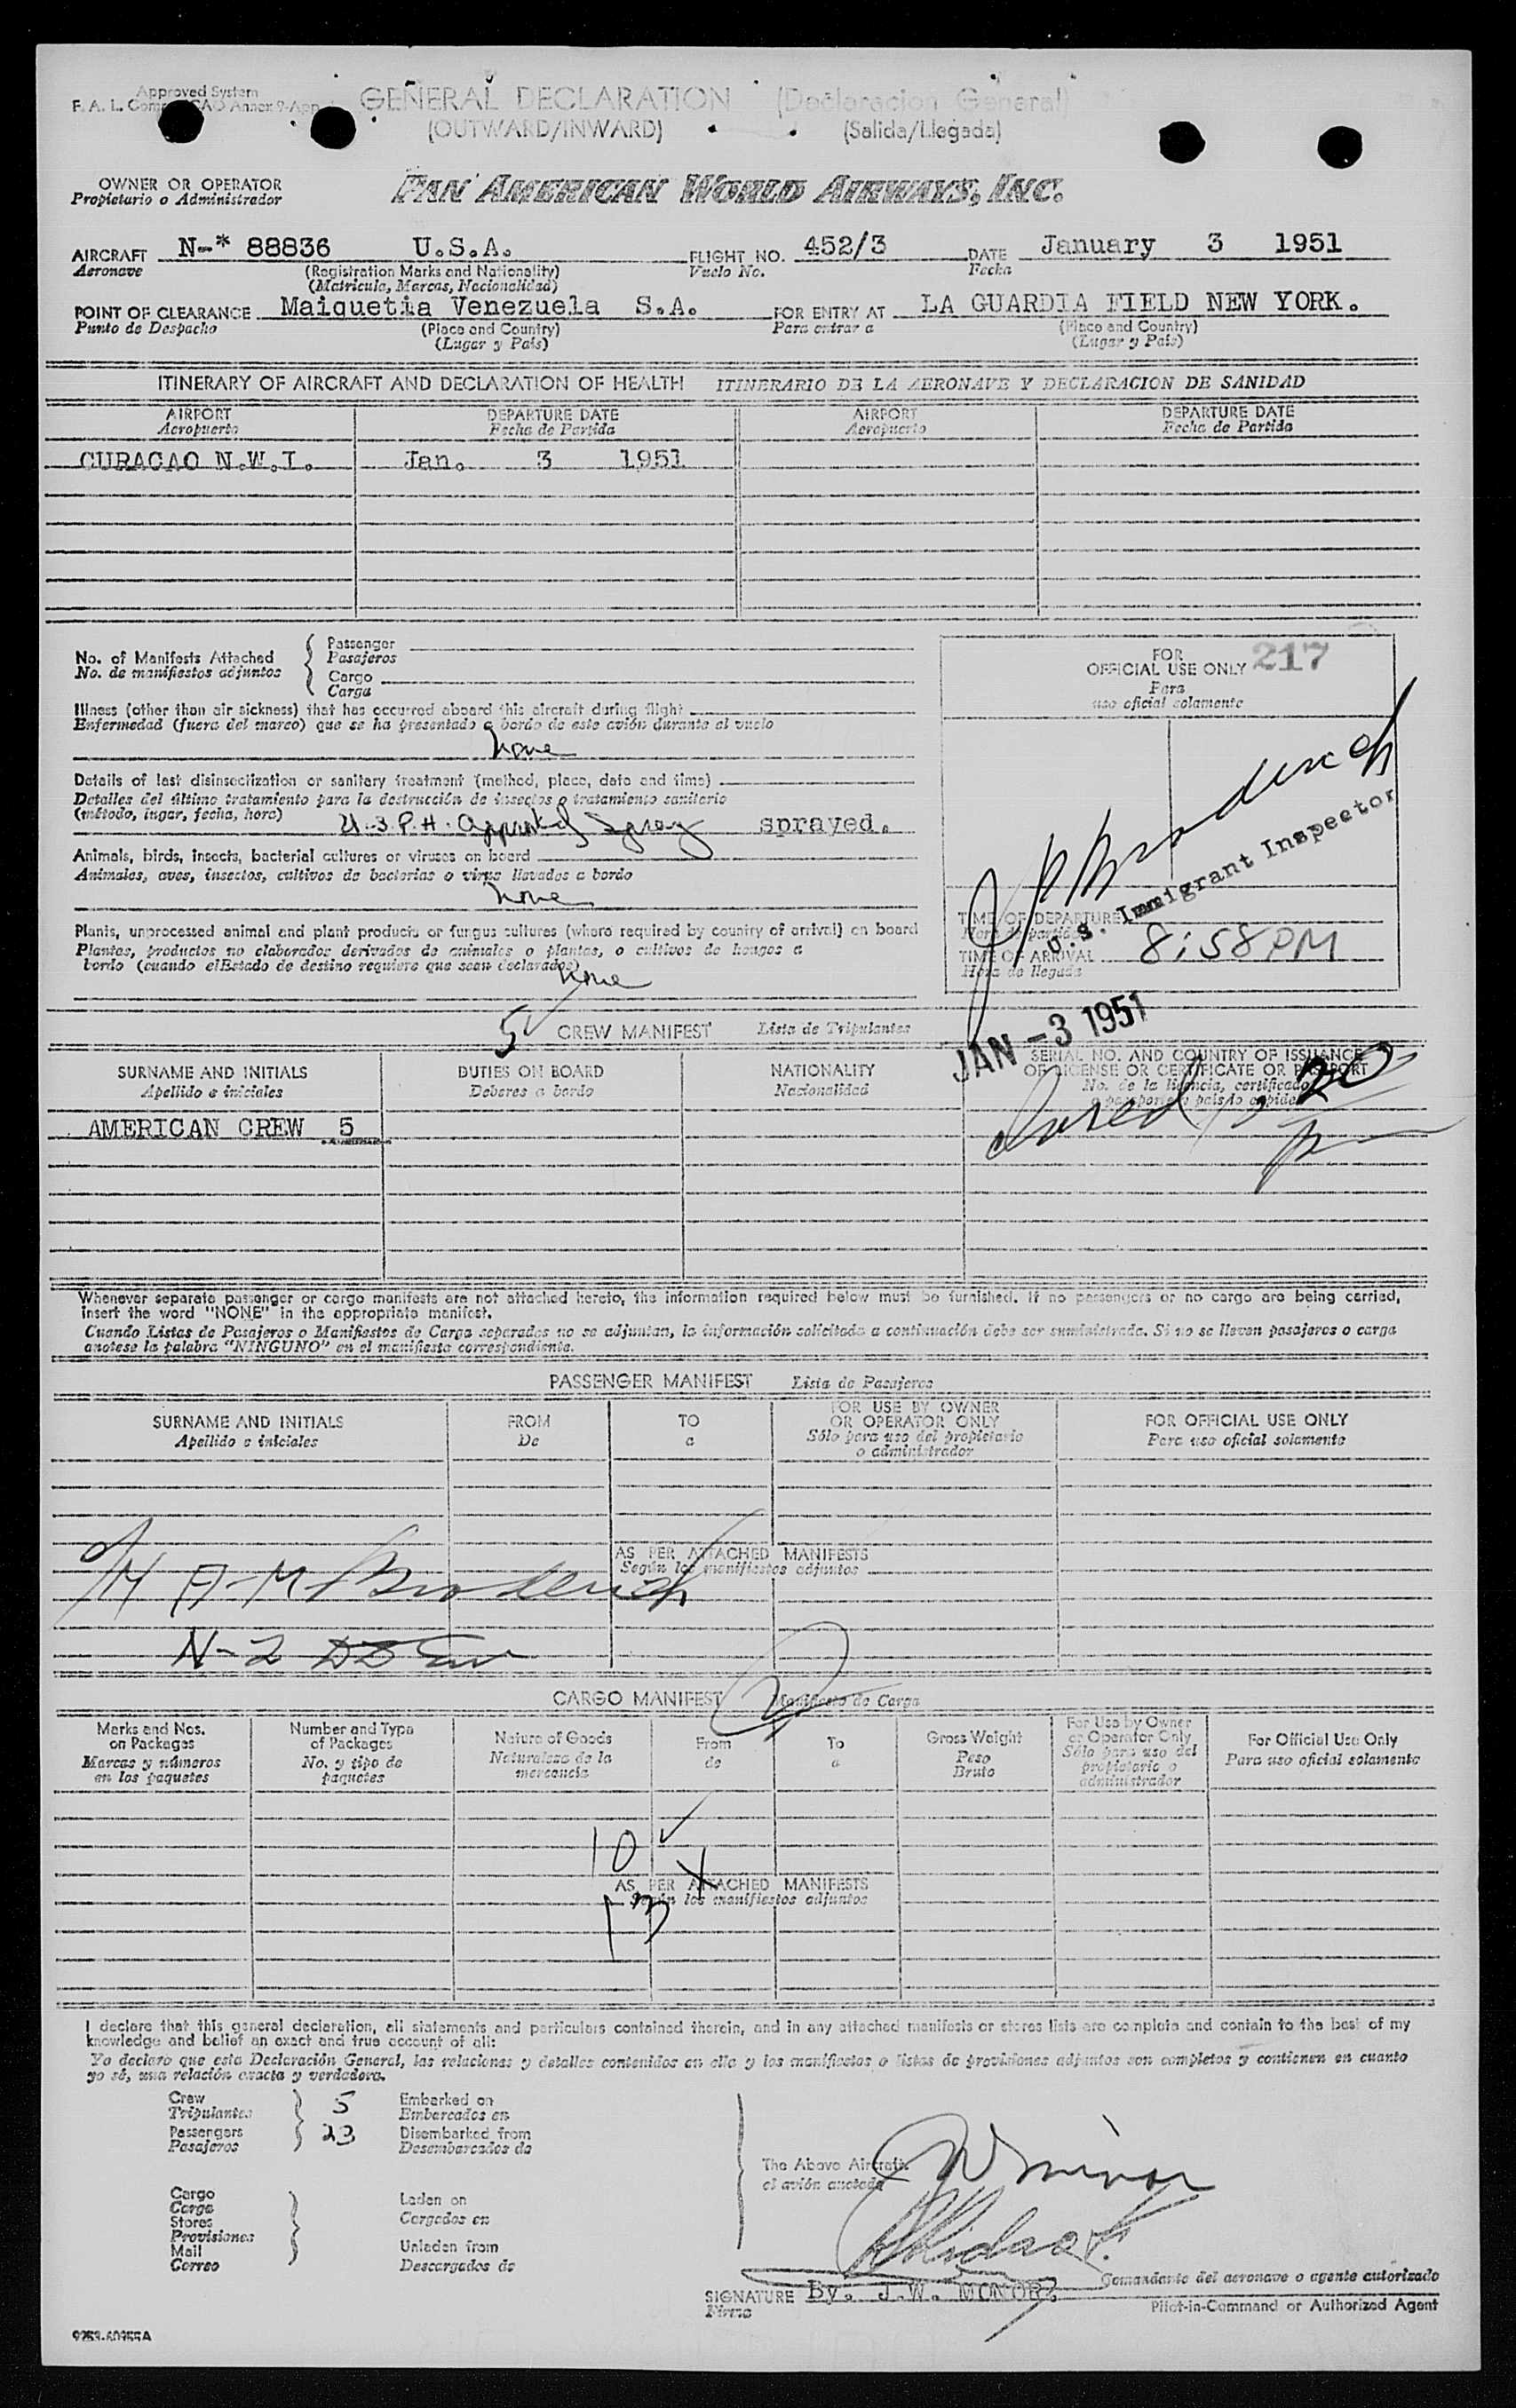 Approved System
F. A. L. Annex 9-App
GENERAL DECLARATION (Declaracion General)
(OUTWARD/INWARD) (Salida/Llegada)
OWNER OR OPERATOR
Propietario o Administrador
PAN AMERICAN WORLD AIRWAYS, INC.
AIRCRAFT N-* 88836 U.S.A. FLIGHT NO. 452/3 DATE January 3 1951
Aeronave (Registration Marks and Nationality) Vuelo No. Fecha
(Matricula, Marcas, Nacionalidad)
POINT OF CLEARANCE Maiquetia Venezuela S.A. FOR ENTRY AT LA GUARDIA FIELD NEW YORK.
Punto de Despacho (Place and Country) Para entrar a (Place and Country)
(Lugar y País) (Lugar y País)
ITINERARY OF AIRCRAFT AND DECLARATION OF HEALTH ITINERARIO DE LA AERONAVE Y DECLARACION DE SANIDAD
AIRPORT DEPARTURE DATE AIRPORT DEPARTURE DATE
Aeropuerto Fecha de Partida Aeropuerto Fecha de Partida
CURACAO N.W.I. Jan. 3 1951
No. of Manifests Attached
No. de manifiestos adjuntos
Passenger
Pasajeros
Cargo
Carga
Illness (other than air sickness) that has occurred aboard this aircraft during flight
Enfermedad (fuera del mareo) que se ha presentado a bordo de este avión durante el vuelo
None
Details of last disinsectization or sanitary treatment (method, place, date and time)
Detalles del último tratamiento para la destrucción de insectos o tratamiento sanitario
(método, lugar, fecha, hora) U.S.P.H. Approved Spray sprayed.
Animals, birds, insects, bacterial cultures or viruses on board
Animales, aves, insectos, cultivos de bacterias o virus llevados a bordo
None
Plants, unprocessed animal and plant products or fungus cultures (where required by country of arrival) on board
Plantas, productos no elaborados derivados de animales o plantas, o cultivos de hongos a
bordo (cuando el Estado de destino requiere que sean declarados)
None
FOR
OFFICIAL USE ONLY 217
Para
uso oficial solamente
U.S. Immigrant Inspector
TIME OF DEPARTURE
Hora de partida
TIME OF ARRIVAL 8:58 PM
Hora de llegada
JAN -3 1951
5 CREW MANIFEST Lista de Tripulantes
SURNAME AND INITIALS DUTIES ON BOARD NATIONALITY SERIAL NO. AND COUNTRY OF ISSUANCE
OF LICENSE OR CERTIFICATE OR PASSPORT
Apellido e iniciales Deberes a bordo Nacionalidad No. de la licencia, certificado
o pasporte y país do expide
AMERICAN CREW 5
Whenever separate passenger or cargo manifests are not attached hereto, the information required below must be furnished. If no passengers or no cargo are being carried,
insert the word "NONE" in the appropriate manifest.
Cuando Listas de Pasajeros o Manifiestos de Carga separados no se adjuntan, la información solicitada a continuación debe ser suministrada. Si no se llevan pasajeros o carga
anotese la palabra "NINGUNO" en el manifiesto correspondiente.
PASSENGER MANIFEST Lista de Pasajeros
SURNAME AND INITIALS FROM TO FOR USE BY OWNER
OR OPERATOR ONLY FOR OFFICIAL USE ONLY
Apellido e iniciales De a Sólo para uso del propietario
o administrador Para uso oficial solamente
AS PER ATTACHED MANIFESTS
Según los manifiestos adjuntos
N-2
CARGO MANIFEST Manifiesto de Carga
Marks and Nos.
on Packages
Marcas y números
en los paquetes
Number and Type
of Packages
No. y tipo de
paquetes
Nature of Goods
Naturaleza de la
mercancía
From
de
To
a
Gross Weight
Peso
Bruto
For Use by Owner
or Operator Only
Sólo para uso del
propietario o
administrador
For Official Use Only
Para uso oficial solamente
10
AS PER ATTACHED MANIFESTS
Según los manifiestos adjuntos
13
I declare that this general declaration, all statements and particulars contained therein, and in any attached manifests or stores lists are complete and contain to the best of my
knowledge and belief an exact and true account of all:
Yo declaro que esta Declaración General, las relaciones y detalles contenidos en ella y los manifiestos o listas de provisiones adjuntos son completos y contienen en cuanto
yo sé, una relación exacta y verdadera.
Crew 5 Embarked on
Tripulantes Embarcados en
Passengers 23 Disembarked from
Pasajeros Desembarcados de
Cargo Laden on
Carga Cargados en
Stores
Provisiones
Mail Unladen from
Correo Descargados de
The Above Aircraft
el avión anotado
JW Minor
Comandante del aeronave o agente autorizado
SIGNATURE By. J.W. MINOR.
Firma
Pilot-in-Command or Authorized Agent